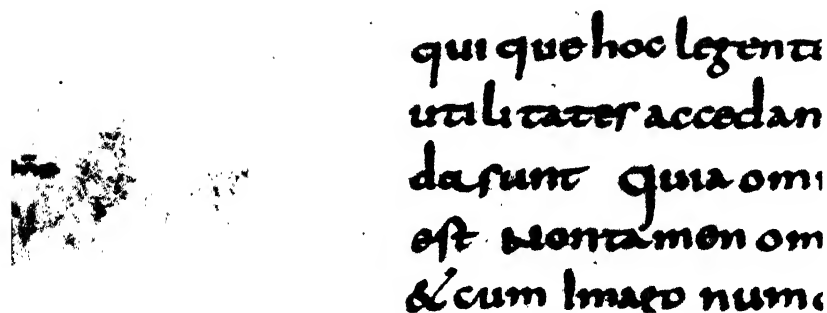 qui que hoc legenti
utilitates accedan
da sunt Quia omi
est Nontamen om
& cum Imago num